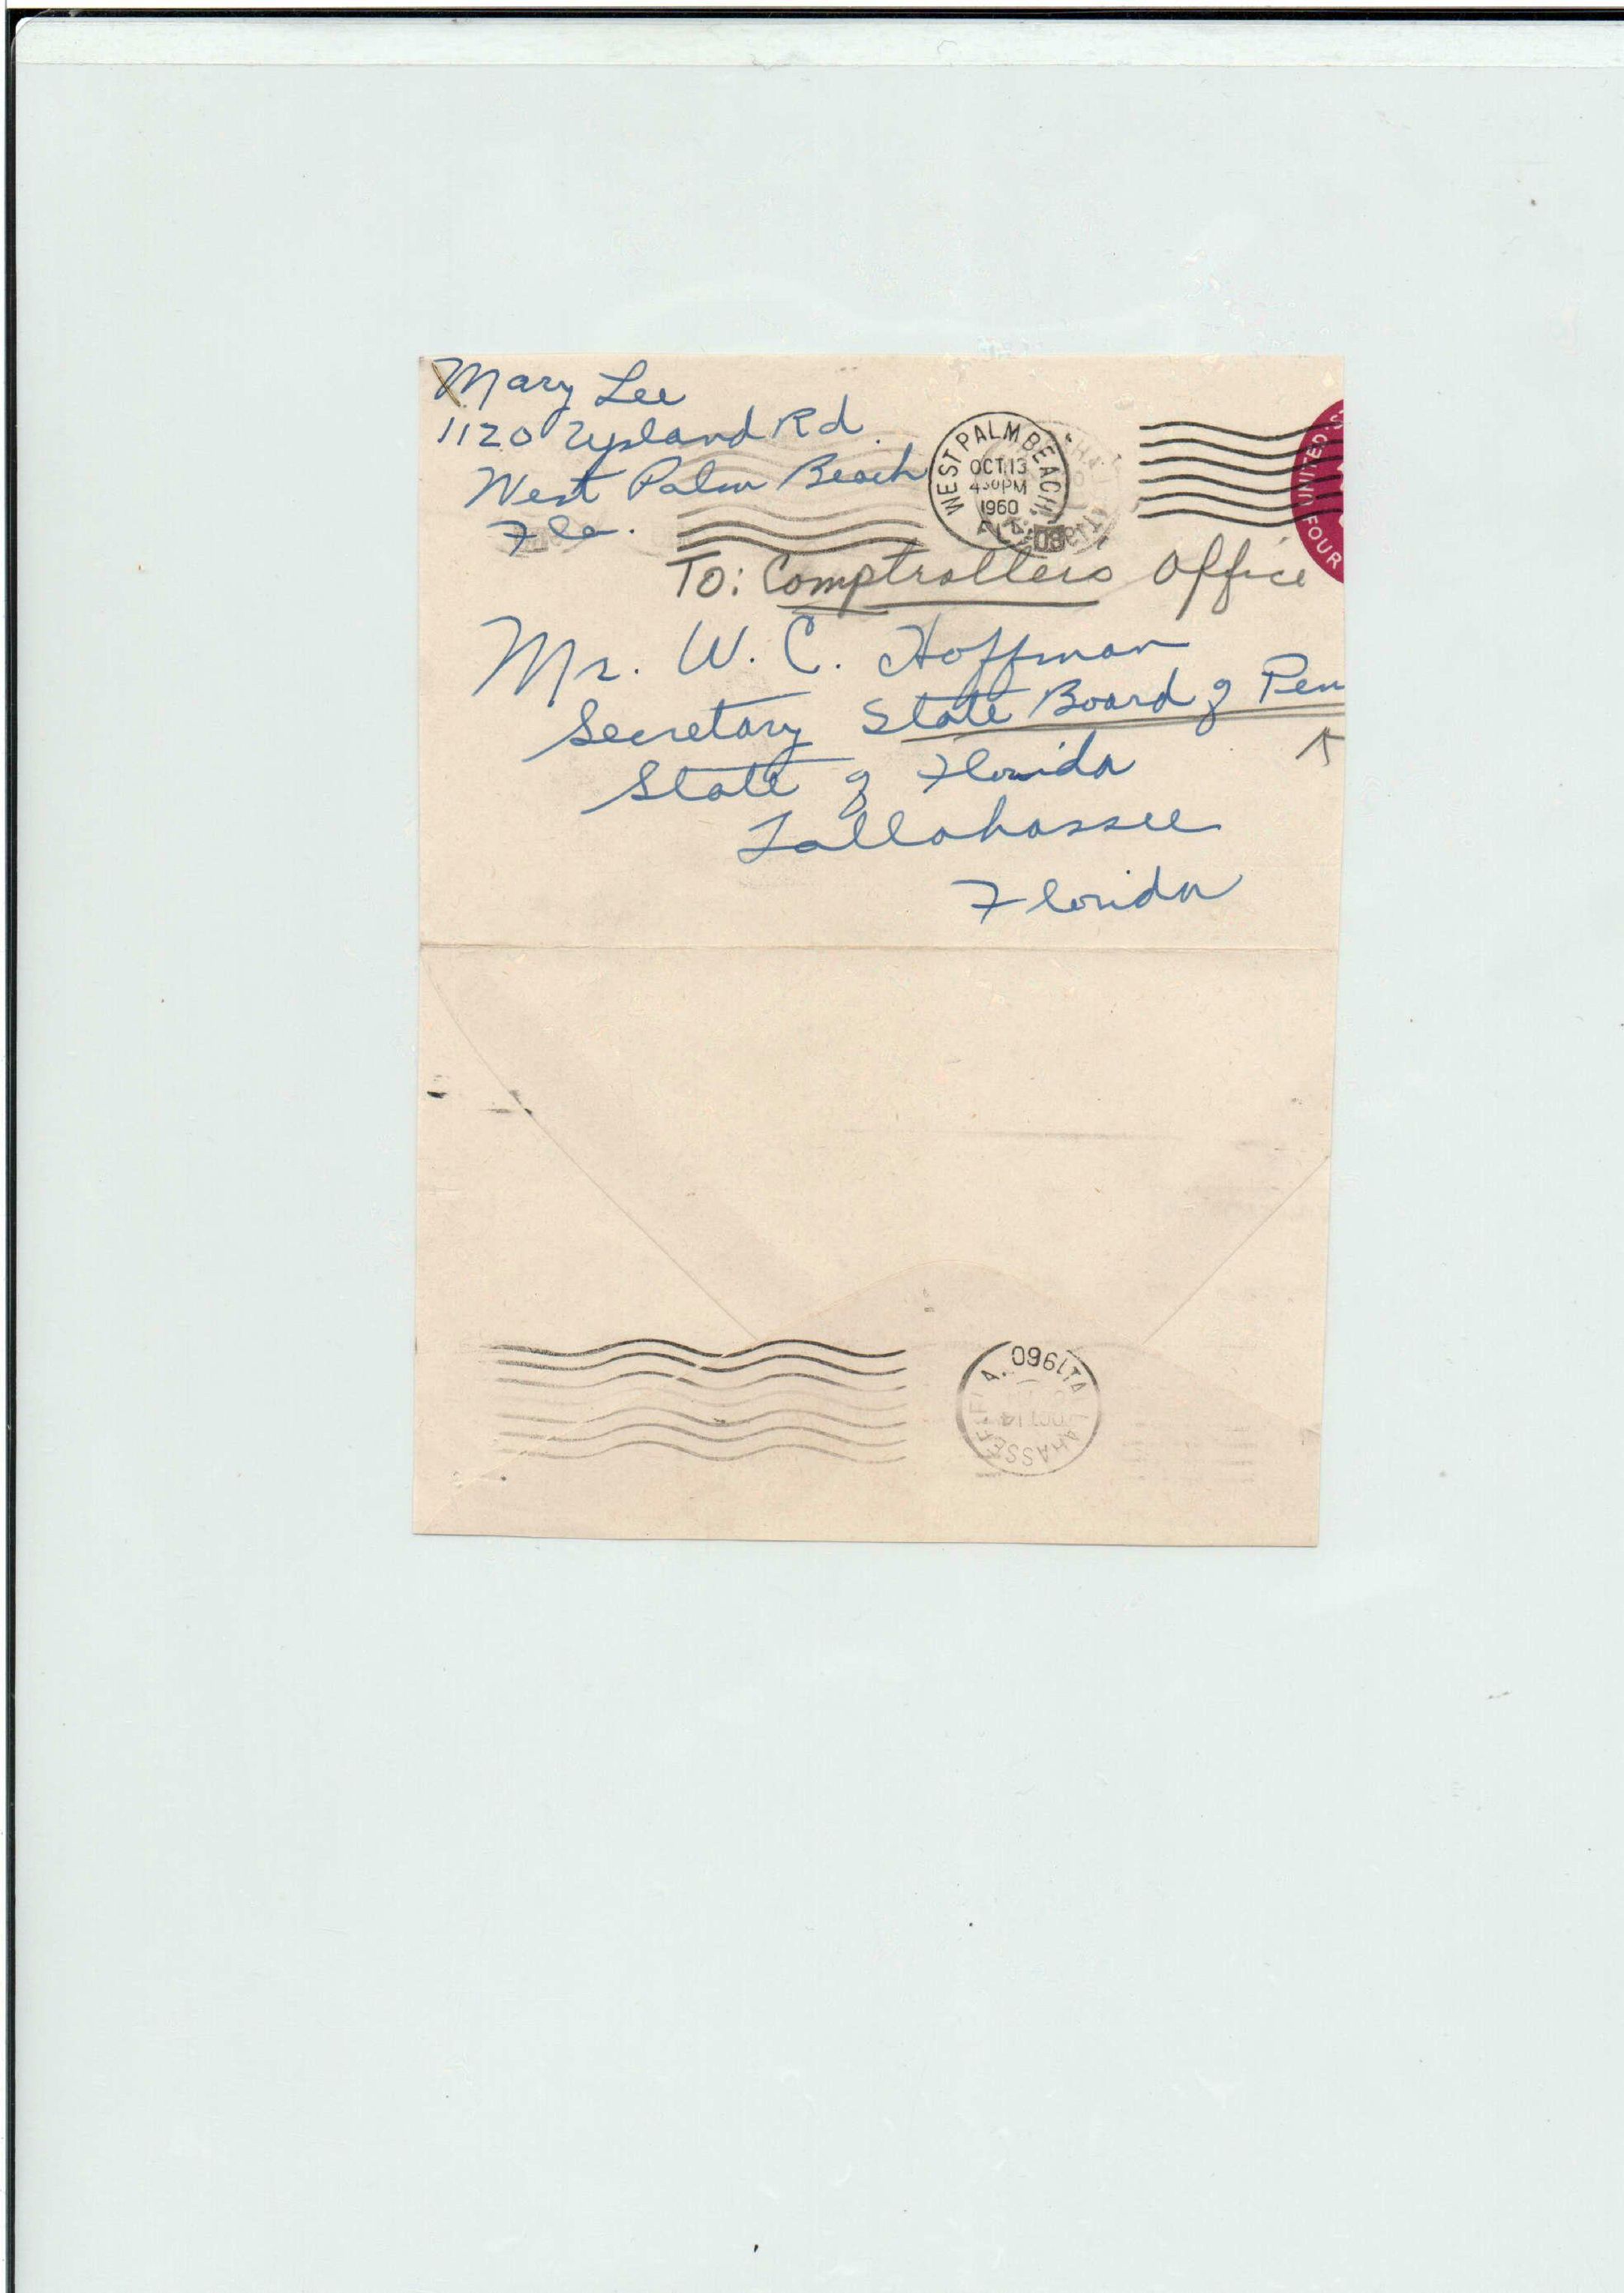 Mary Lee
1120 Upland Rd.
West Palm Beach
Fla.
WEST PALM BEACH
OCT 13
4 30 PM
1960
FLA.
UNITED S
FOUR
To: Comptrollers Office
Mr. W. C. Hoffman
Secretary State Board of Pen
State of Florida
Tallahassee
Florida
TALLAHASSEE FLA.
OCT 14
1960